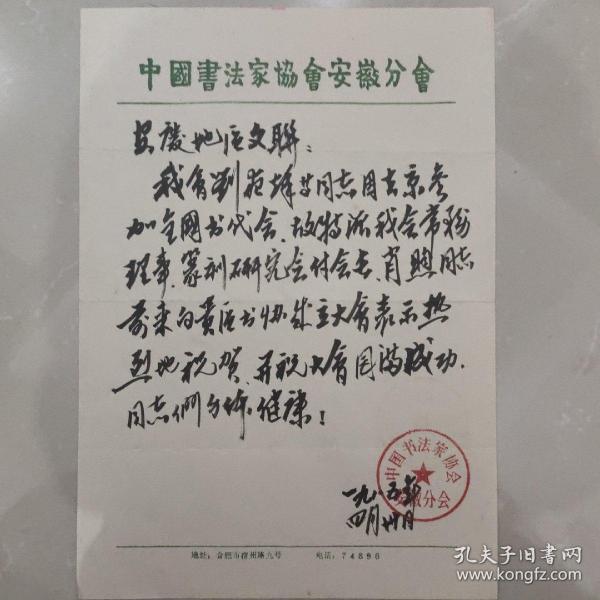 中國書法家協會安徽分會
安慶地区文聯：
我會劉夜烽等同志因去京參
加全國书代会，故特派我会常務
理事、篆刻研究会付会長、肖照同志
前来向貴区书协成立大會表示热
烈地祝贺。并祝大會圆满成功，
同志們身体健康！
中国书法家协会
安徽分会
一九八五年
四月廿日
地址：合肥市宿州路九号 电话：74896
孔夫子旧书网
www.kongfz.com